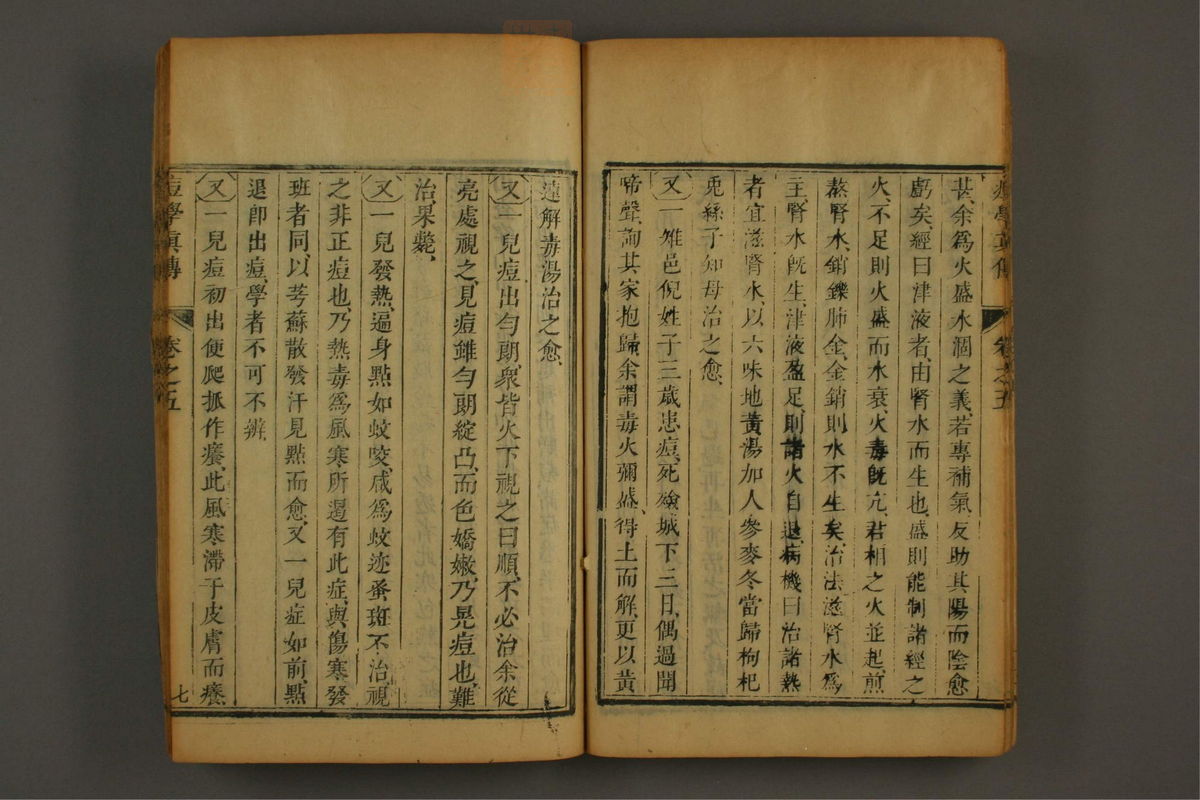 甚、余爲火盛水涸之義、若專補氣、反助其陽而陰愈
虧矣、經曰津液者、由腎水而生也、盛則能制諸經之
火、不足則火盛而水衰、火毒旣亢、君相之火並起、煎
熬腎水、銷鑠肺金、金銷則水不生矣、治法滋腎水爲
主、腎水旣生、津液盈足、則諸火自退、病機曰治諸熱
者宜滋腎水、以六味地黃湯加人參麥冬當歸枸杞
兎絲子知母治之愈、
又一雉邑倪姓子三歲患痘、死殮城下三日、偶過聞
啼聲、詢其家抱歸、余謂毒火彌盛、得土而解、更以黃
連解毒湯治之愈、
又一兒痘出勻朗、衆皆火下視之曰順、不必治、余從
亮處視之、見痘雖勻朗綻凸、而色嬌嫩、乃晃痘也、難
治、果斃、
又一兒發熱、遍身點如蚊咬、咸爲蚊迹蚤斑不治、視
之非正痘也、乃熱毒爲風寒所遏有此症、與傷寒發
班者同、以芎蘇散發汗見點而愈、又一兒症如前、點
退卽出痘、學者不可不辨、
又一兒痘初出便爬抓作癢、此風寒滯于皮膚而癢、
痘學眞傳
卷之五
七